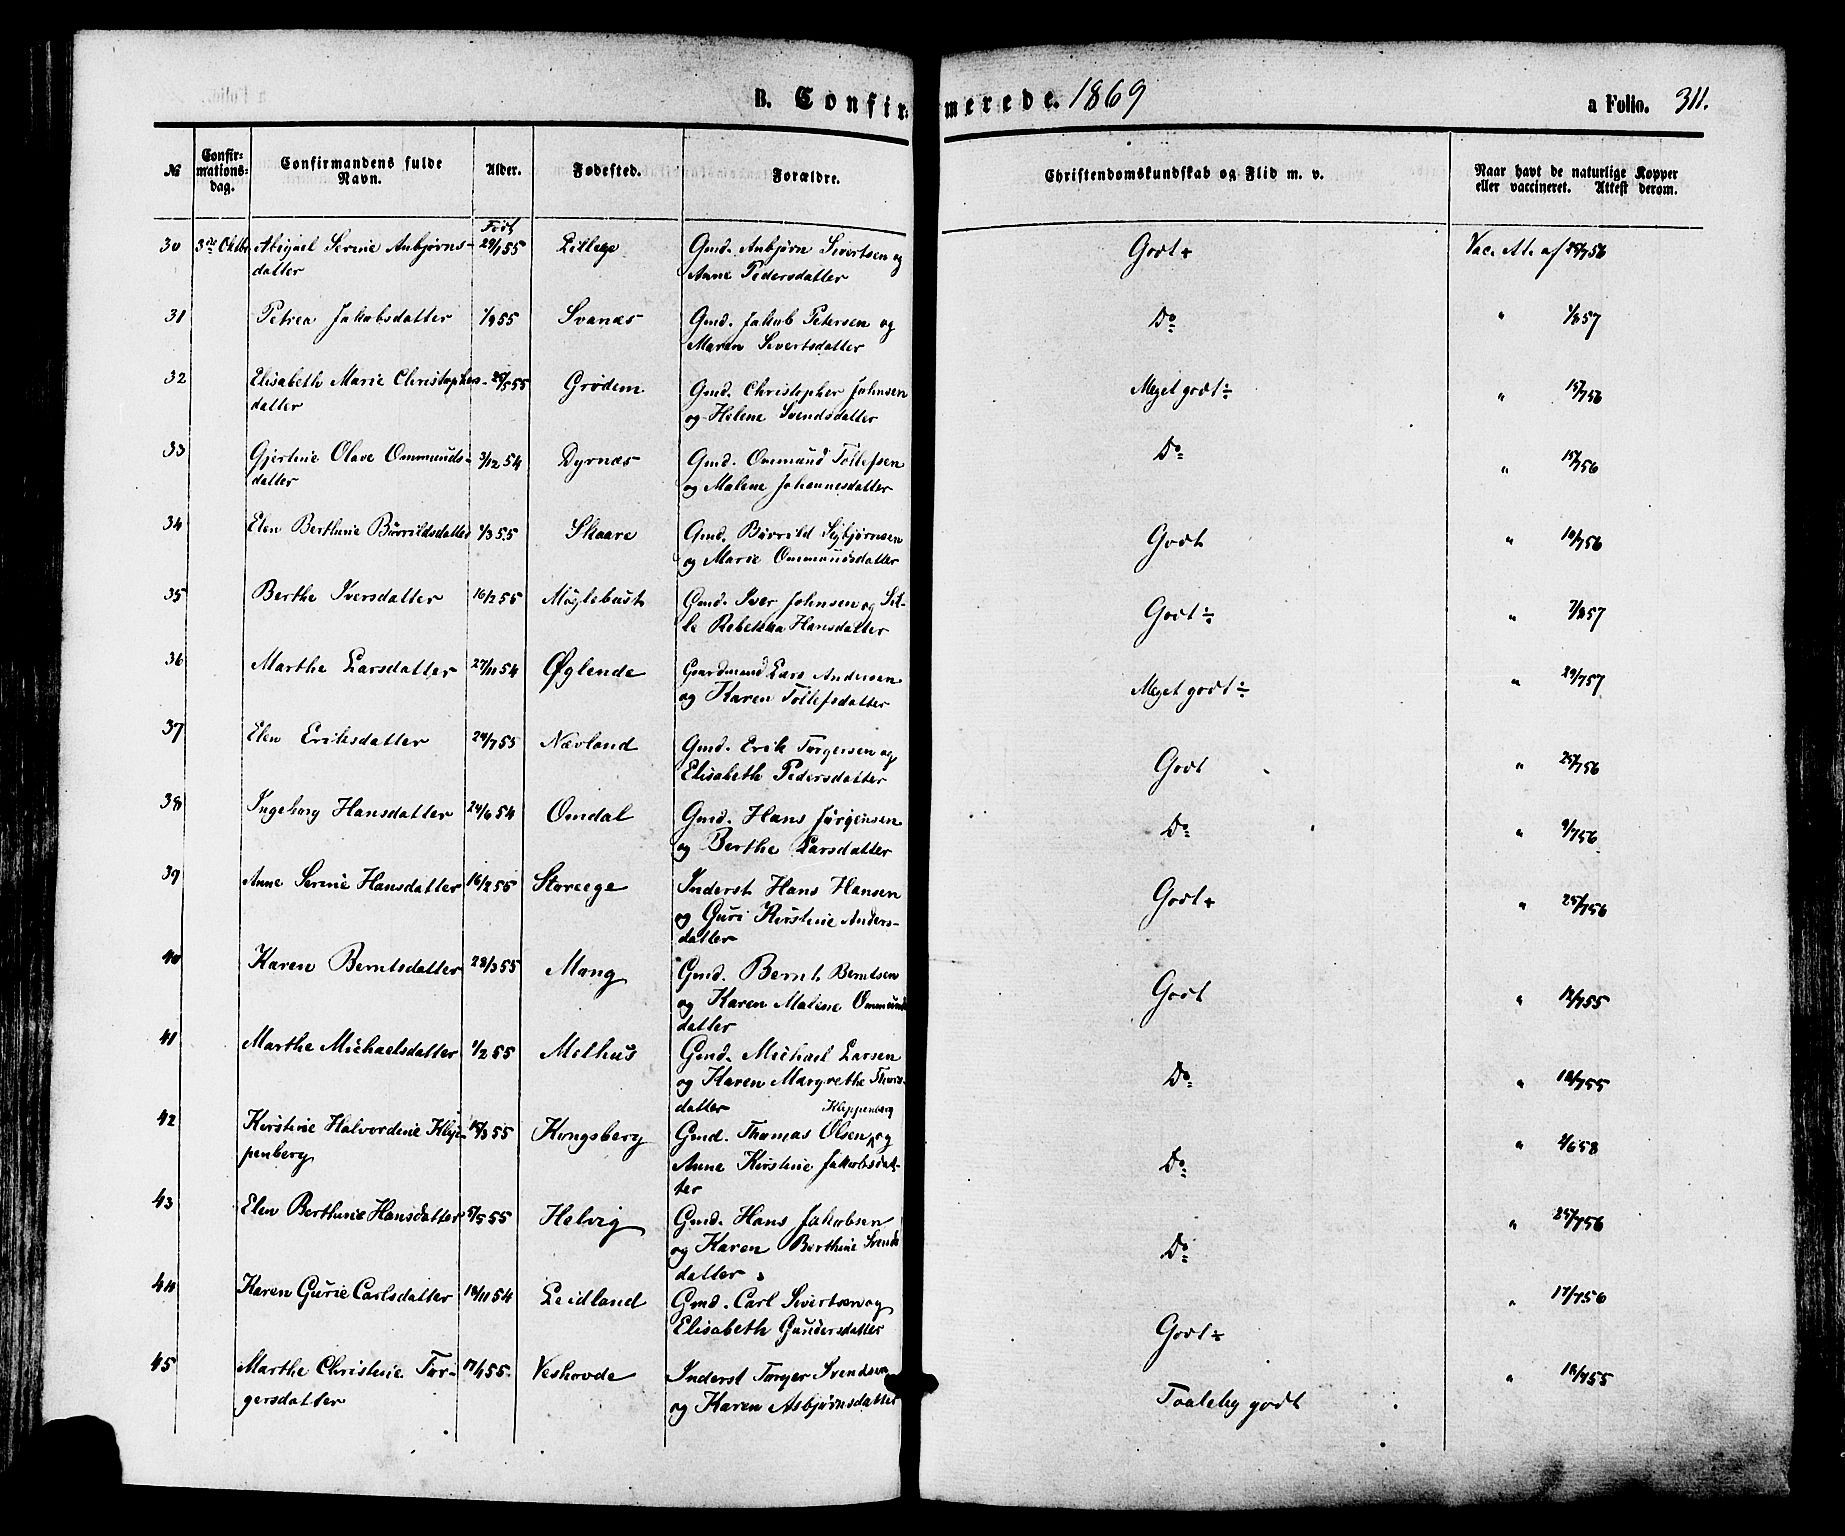 B. Confirmerede. 1869
a Folio. 311.
№ Confirmationsdag. Confirmandens fulde Navn. Alder. Fødested. Forældre. Christendomskundskab og Flid m. v. Naar havt de naturlige Kopper eller vaccineret. Attest derom.
Født
30 3die Oktbr Abigael Serine Anbjørns- 29/1 55 Lillege Gmd. Anbjørn Sivertsen og Godt+ Vac. At. af 25/7 56
datter Anne Pedersdatter
31 Petrea Jakobsdatter 1/9 55 Svanæs Gmd. Jakob Petersen og Do " 1/8 57
Maren Sivertsdatter
32 Elisabeth Marie Christophers- 25/5 55 Grødem Gmd. Christopher Johnsen Meget godt÷ " 15/7 56
datter og Helene Svendsdatter
33 Gjertine Olave Ommunds- 3/12 54 Dyrnæs Gmd. Ommund Tollefsen Do " 15/7 56
datter og Malene Johannesdatter
34 Elen Berthine Bürrildsdatter 1/3 55 Skaare Gmd. Bürrild Sigbjørnsen Godt " 10/7 56
og Marie Ommundsdatter
35 Berthe Iversdatter 16/2 55 Møglebust Gmd. Iver Johnsen og Sil- Godt÷ " 7/8 57
le Rebekka Hansdatter
36 Marthe Larsdatter 27/11 54 Øglende Gaardmand Lars Andersen Meget godt÷ " 29/7 57
og Karen Tollefsdatter
37 Elen Eriksdatter 24/7 55 Nævland Gmd. Erik Torgersen og Godt " 25/7 56
Elisabeth Pedersdatter
38 Ingeborg Hansdatter 24/6 54 Omdal Gmd. Hans Jørgensen Do " 9/7 56
og Berthe Larsdatter
39 Anne Serine Hansdatter 16/2 55 Storeege Inderst Hans Hansen Godt+ " 25/7 56
og Guri Kirstine Anders-
datter
40 Karen Berntsdatter 28/3 55 Mong Gmd. Bernt Berntsen Godt " 12/7 55
og Karen Malene Ommunds
datter
41 Marthe Michaelsdatter 1/2 55 Melhus Gmd. Michael Larsen Do " 12/7 55
og Karen Margrethe
datter Kleppenberg
42 Kirstine Halvordine Klep- 15/3 55 Kongsberg Gmd. Thomas Olsen og Do " 2/6 58
penberg Anne Kirstine Jakobsdat-
ter
43 Elen Berthine Hansdatter 5/5 55 Helvig Gmd. Hans Jakobsen Do " 25/7 56
og Karen Berthine Svends
datter
44 Karen Gurie Carlsdatter 18/11 54 Leidland Gmd. Carl Sivertsen og Godt÷ " 17/7 56
Elisabeth Gundersdatter
45 Marthe Christine Tor- 17/1 55 Veshovde Inderst Torger Svendsen Taaleby godt " 12/7 55
gersdatter og Karen Asbjørnsdatter